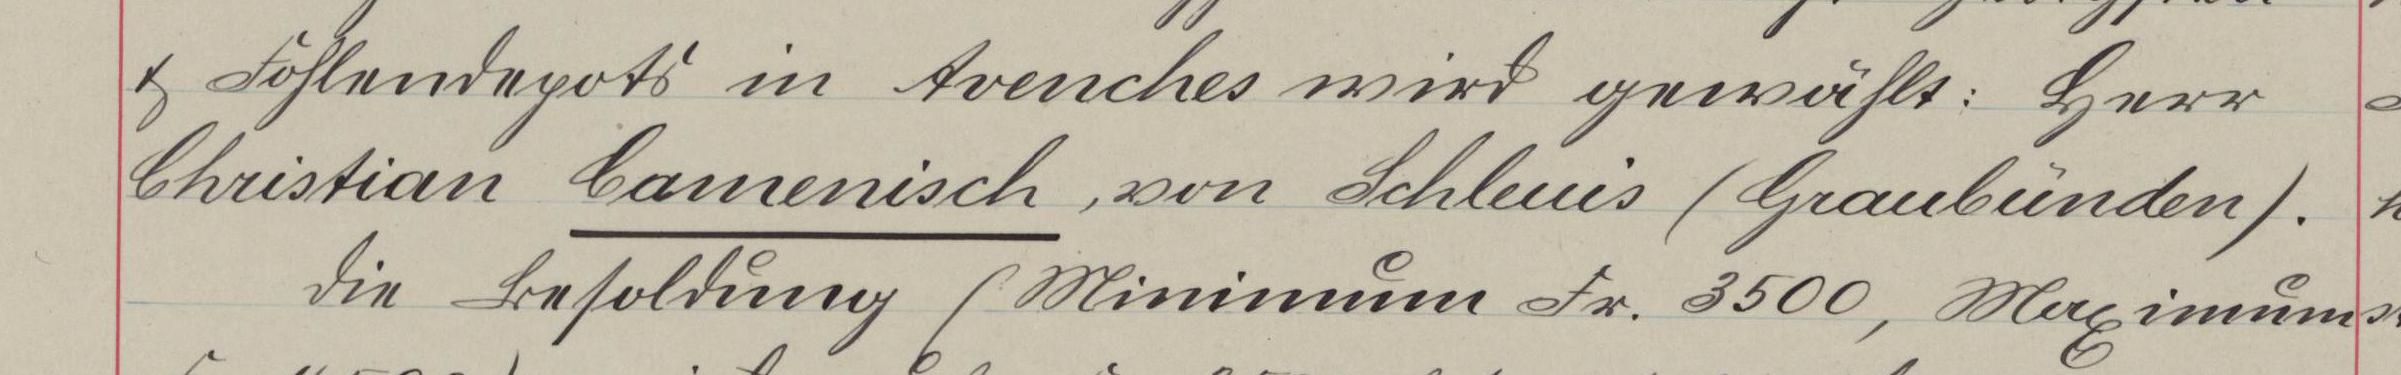 & Fohlendepots in Avenches wird gewählt: Herr
Christian Camenisch, von Schleuis (Graubünden).
Die Besoldung (Minimum Fr. 3500, Maximum